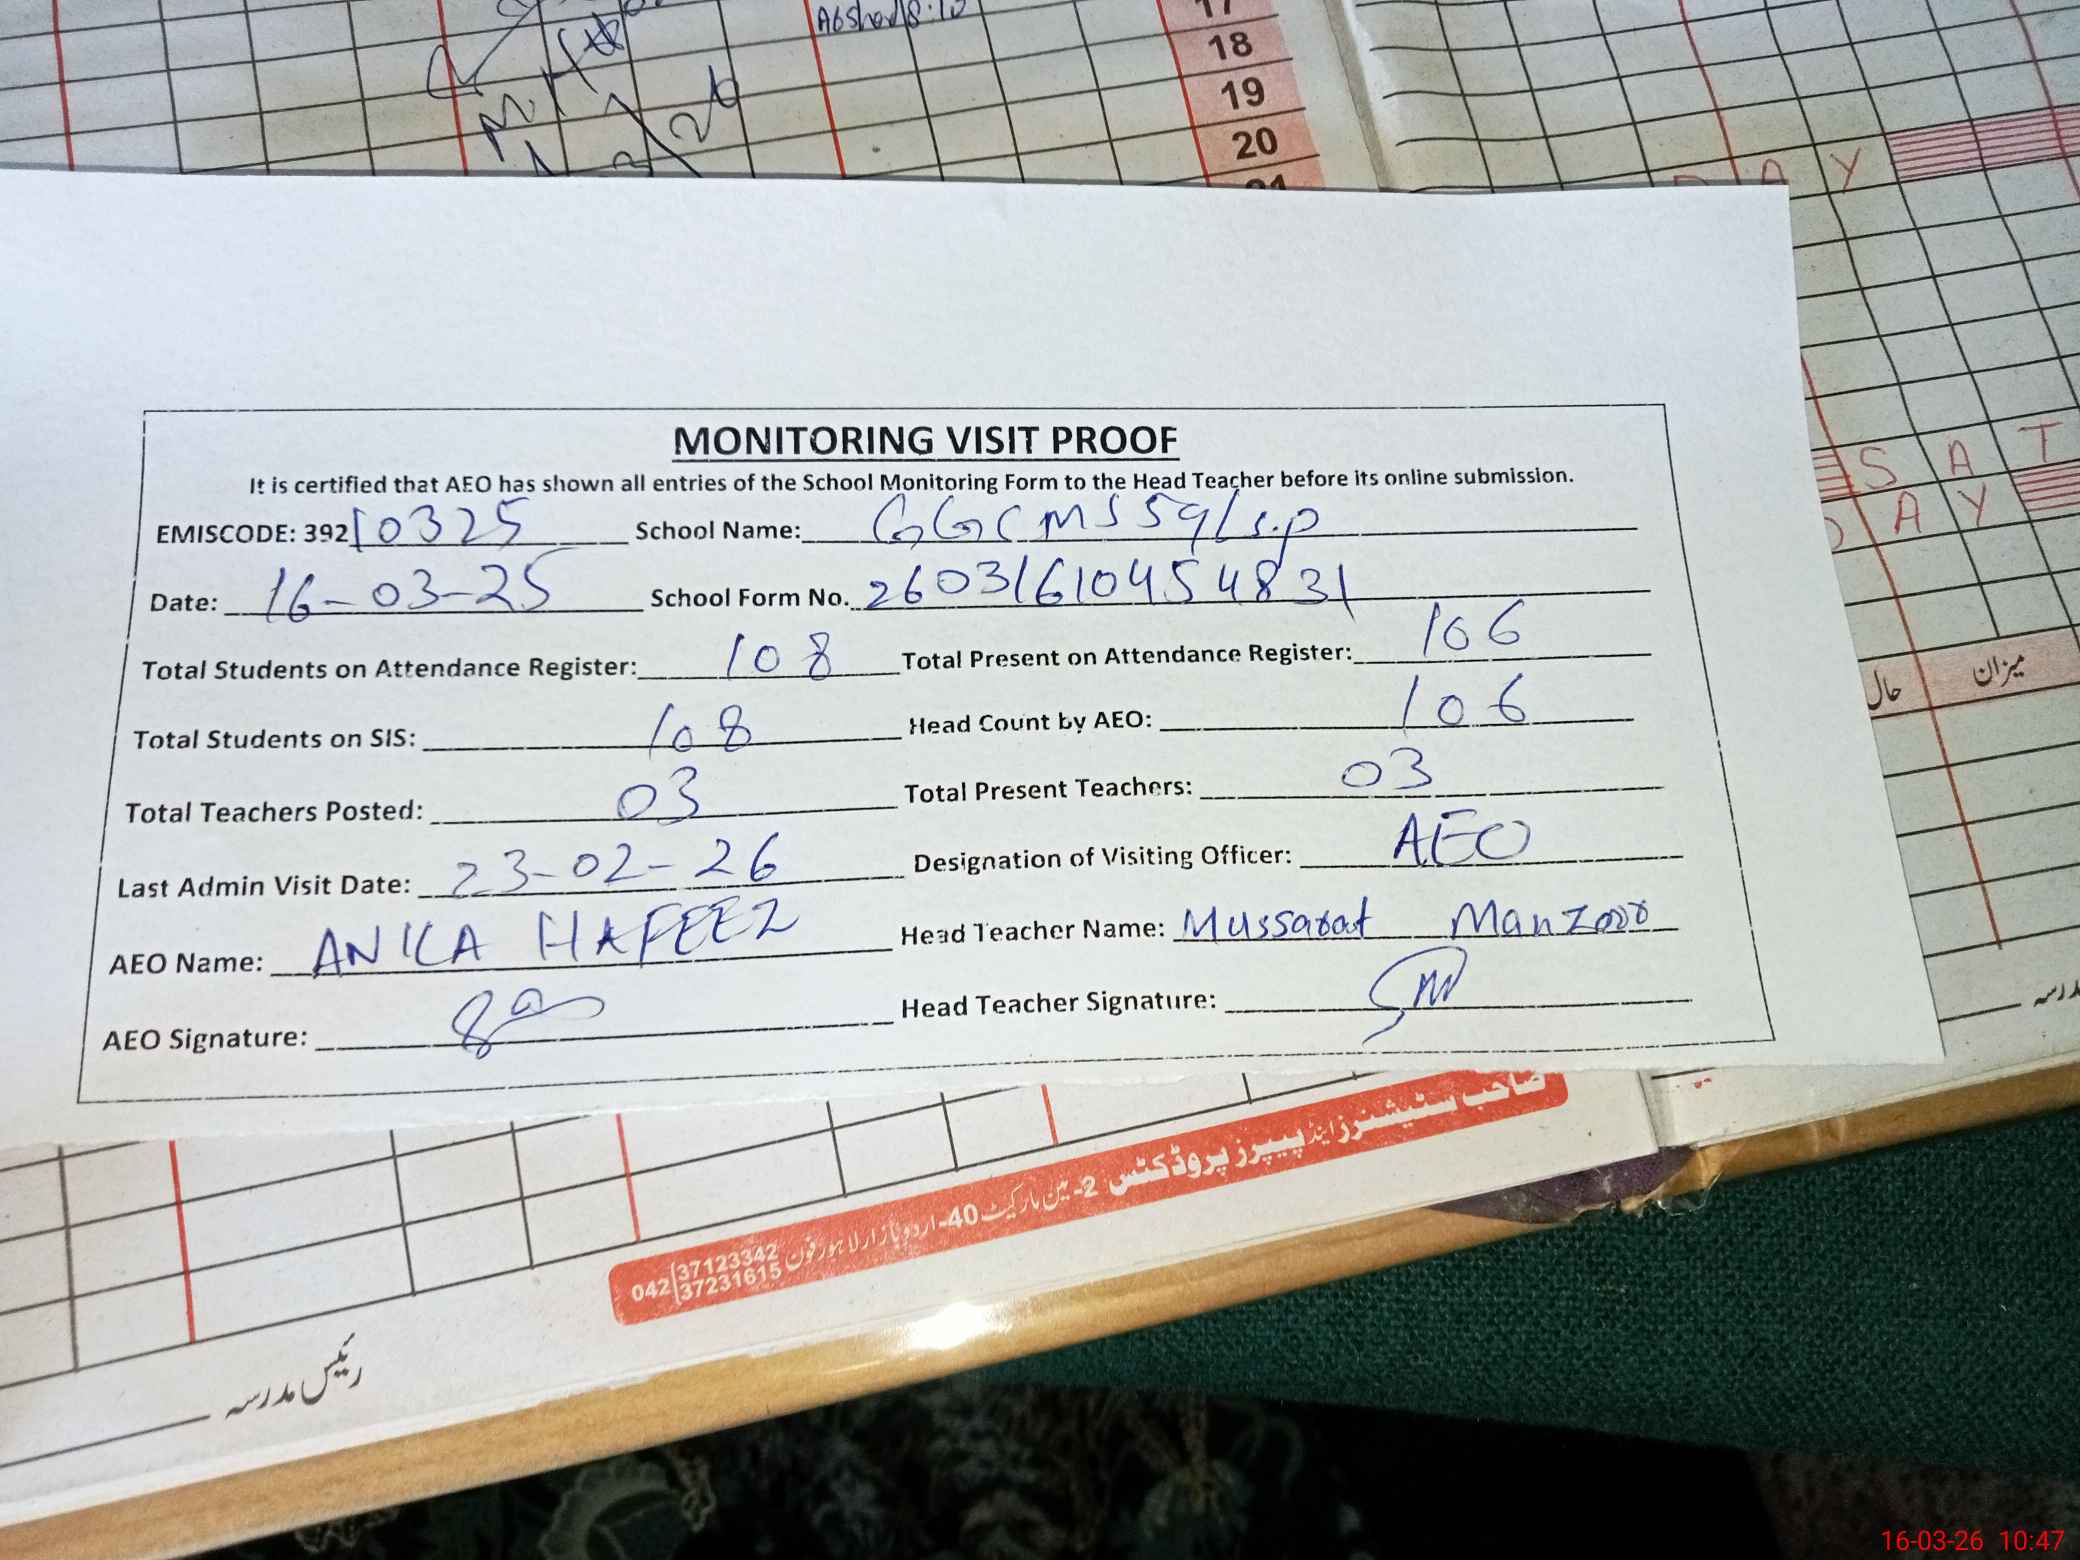 Abshar 8:10
17
18
19
20
21
D A Y
S A T
D A Y
میزان
حال
MONITORING VISIT PROOF
It is certified that AEO has shown all entries of the School Monitoring Form to the Head Teacher before its online submission.
EMISCODE: 39210325 School Name: GGCMS 59/s.p
Date: 16-03-25 School Form No. 26031610454831
Total Students on Attendance Register: 108 Total Present on Attendance Register: 106
Total Students on SIS: 108 Head Count by AEO: 106
Total Teachers Posted: 03 Total Present Teachers: 03
Last Admin Visit Date: 23-02-26 Designation of Visiting Officer: AEO
AEO Name: ANIKA HAFEEZ Head Teacher Name: Mussarat Manzoor
AEO Signature: Head Teacher Signature:
صاحب سٹیشنرز اینڈ پیپرز پروڈکٹس 2- مین مارکیٹ 40- اردو بازار لاہور فون 042 37123342 37231615
رئیس مدرسہ
مدرسہ
16-03-26 10:47